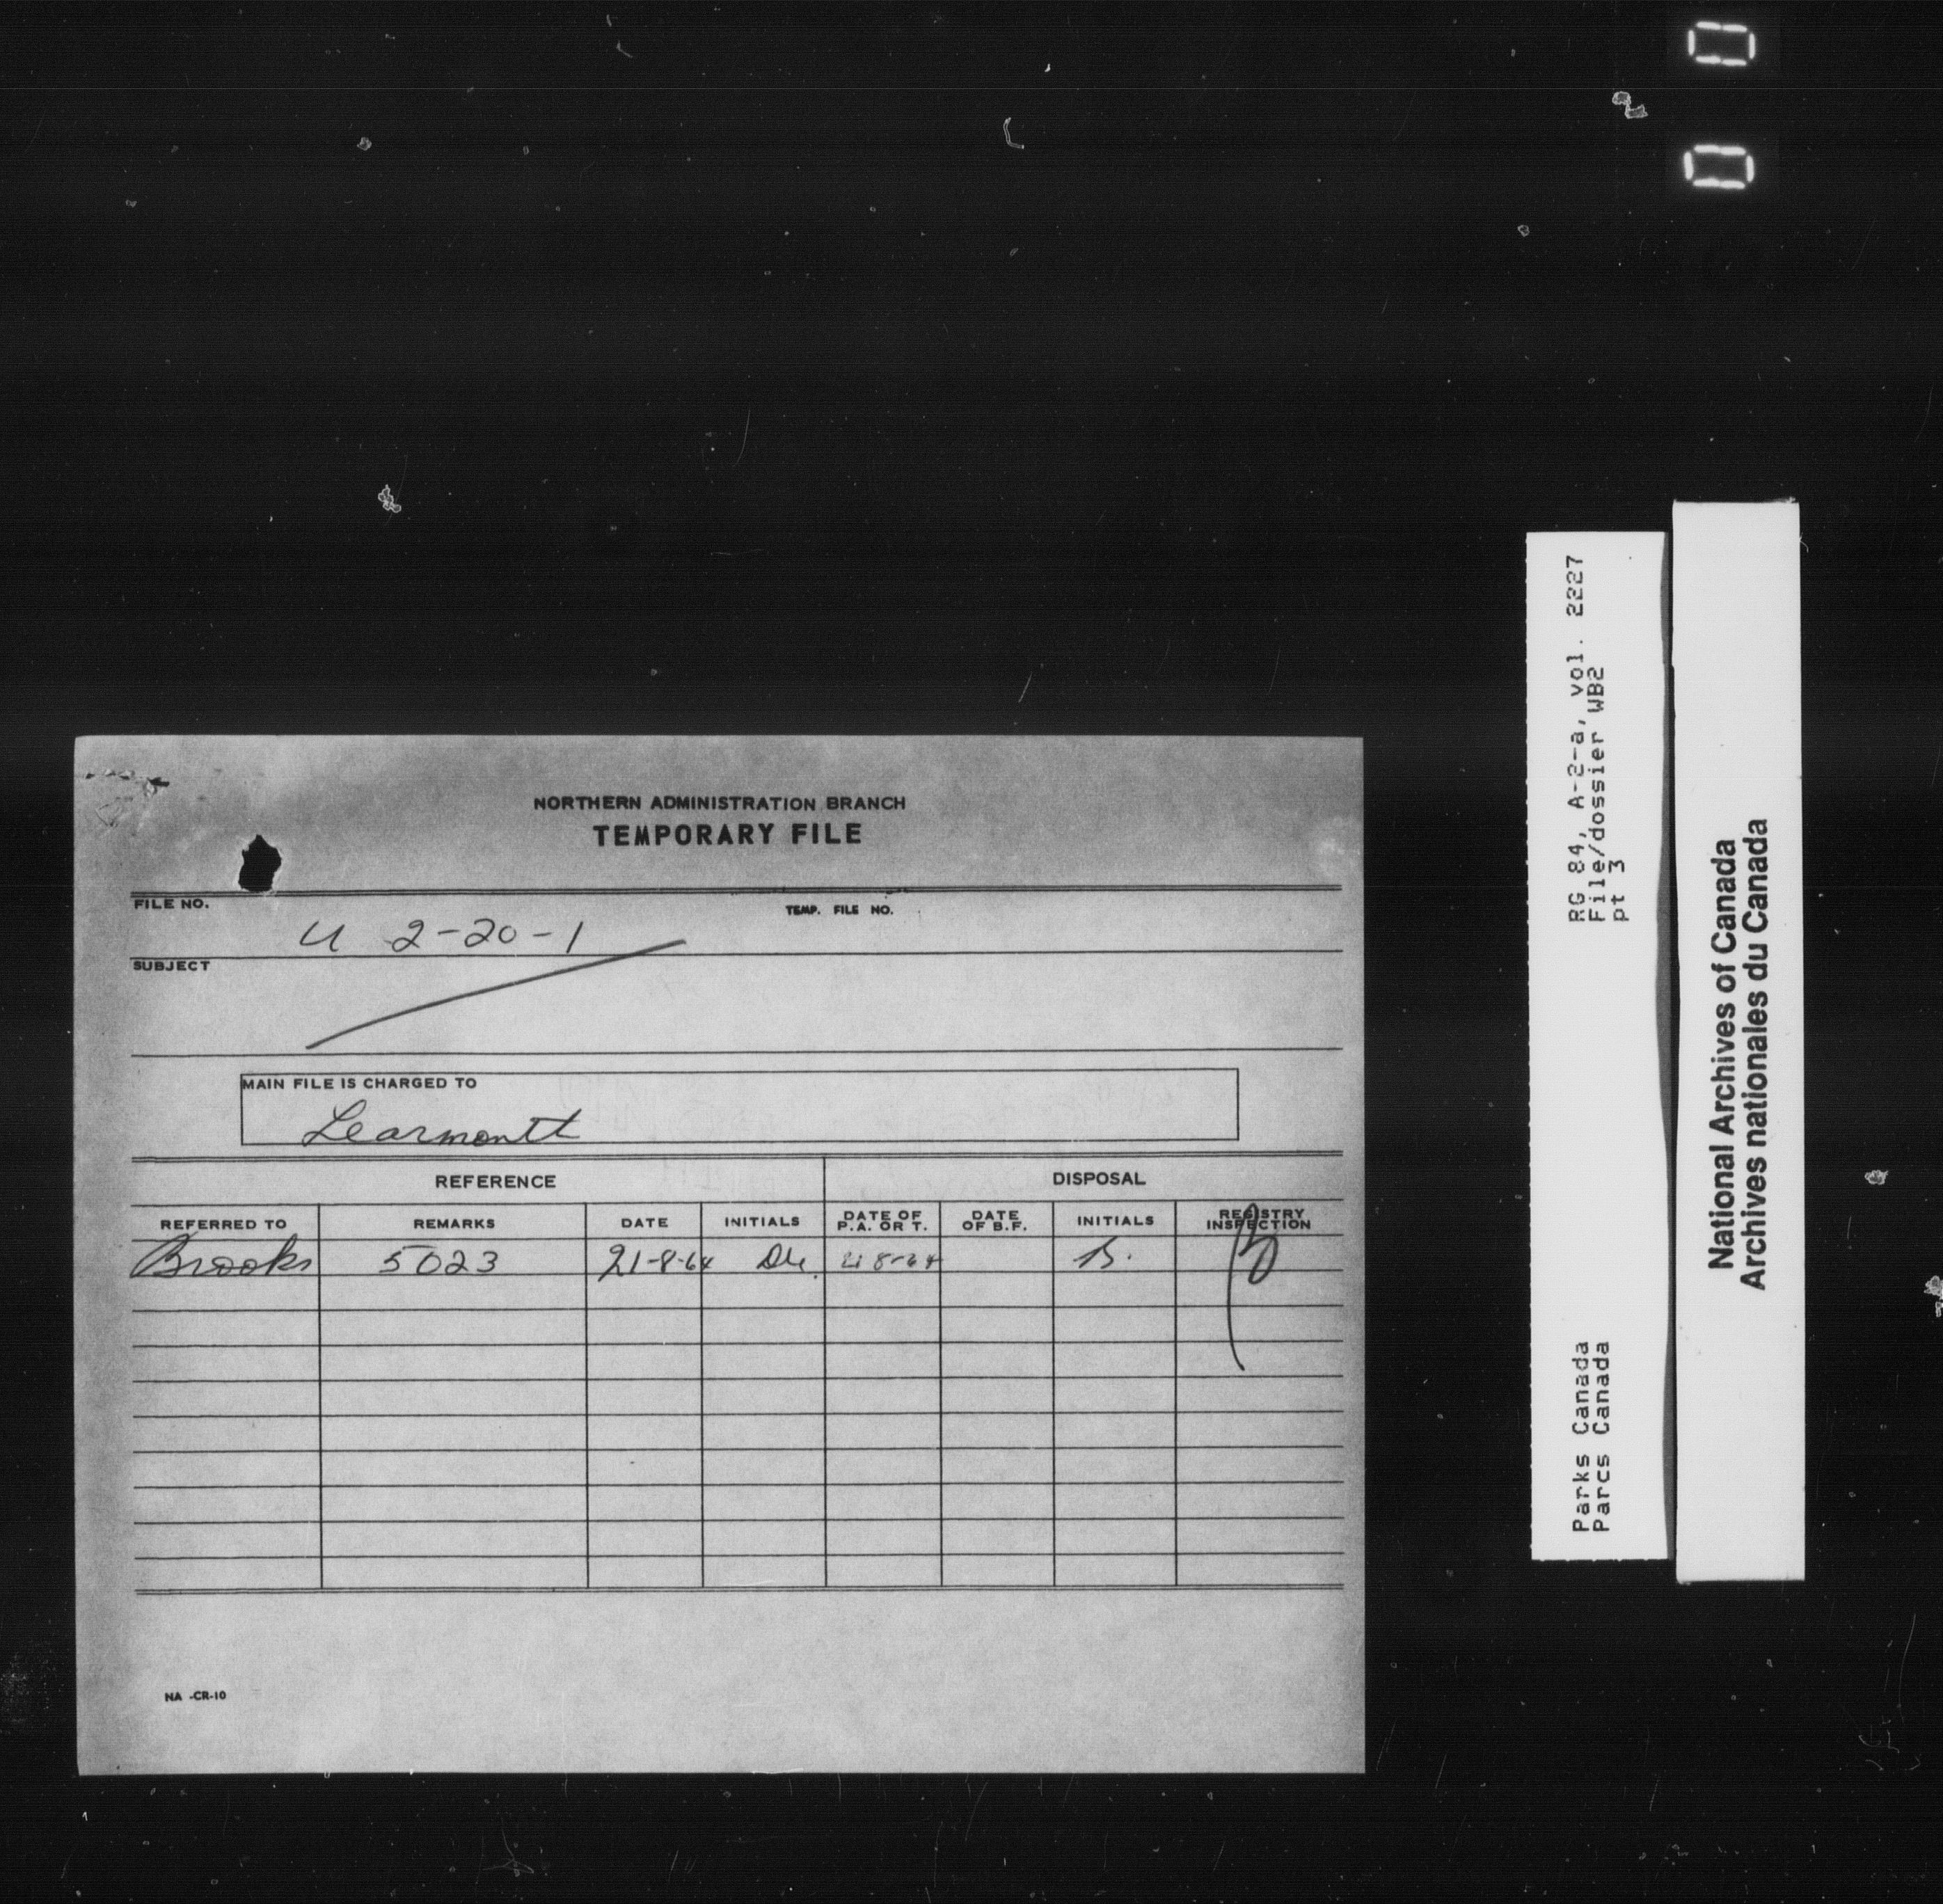 0 0
NORTHERN ADMINISTRATION BRANCH
TEMPORARY FILE
FILE NO.
TEMP. FILE NO.
U 2-20-1
SUBJECT
MAIN FILE IS CHARGED TO
Learmonth
REFERENCE DISPOSAL
REFERRED TO REMARKS DATE INITIALS DATE OF P.A. OR T. DATE OF B.F. INITIALS REGISTRY INSPECTION
Brooks 5023 21-8-64 21 8-64 B.
NA -CR-10
RG 84, A-2-a, vol. 2227
File/dossier WB2
pt 3
Parks Canada
Parcs Canada
National Archives of Canada
Archives nationales du Canada